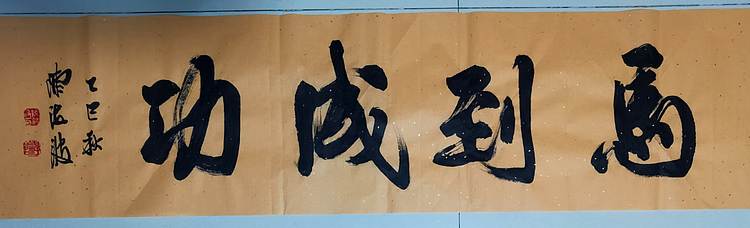 馬到成功
乙巳秋